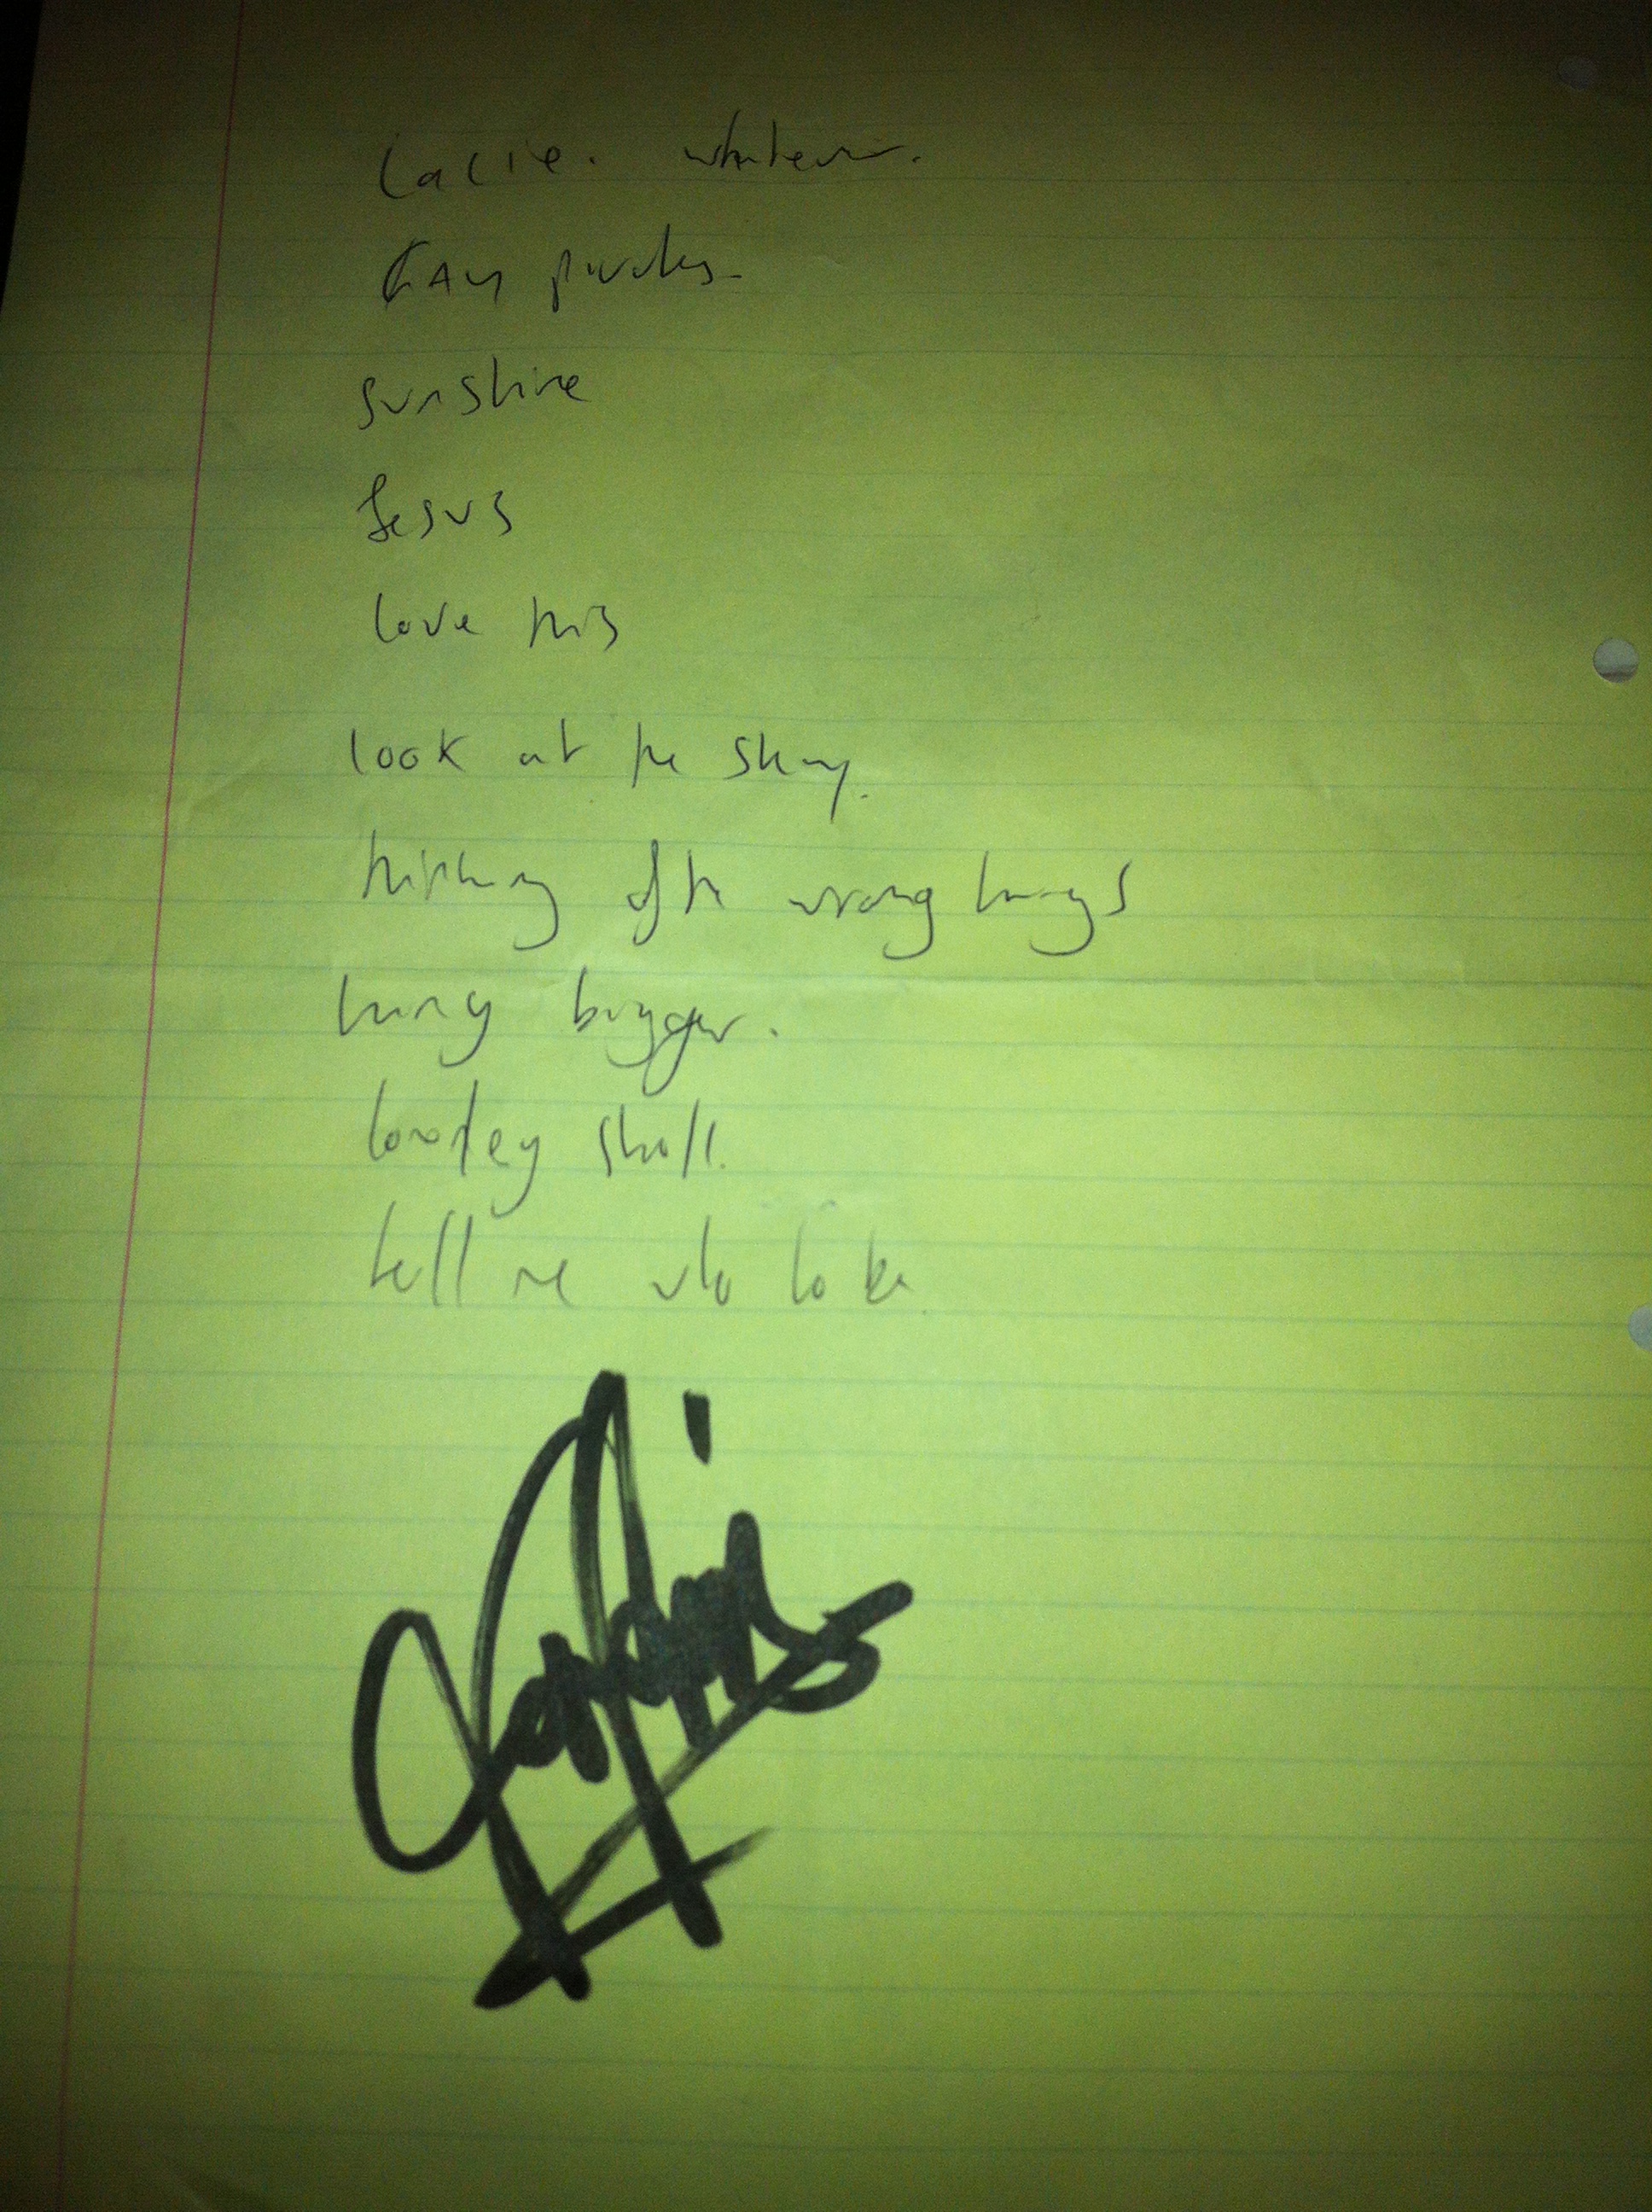 Lacie. whatever.
Gay pirates.
sunshine
Jesus
love this
look at the
thinking of the wrong things
thing bigger.
shell.
tell me who to be.